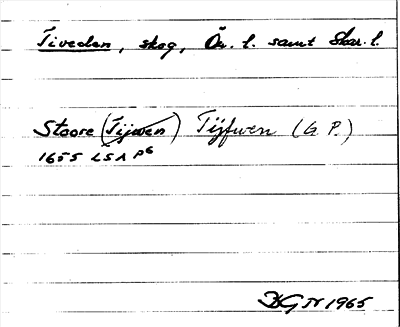 Tiveden, skog, Ör. l. samt Skar. l.
Stoore (Tijwen) Tijfwen (G. P.)
1655 LSA P6
1965